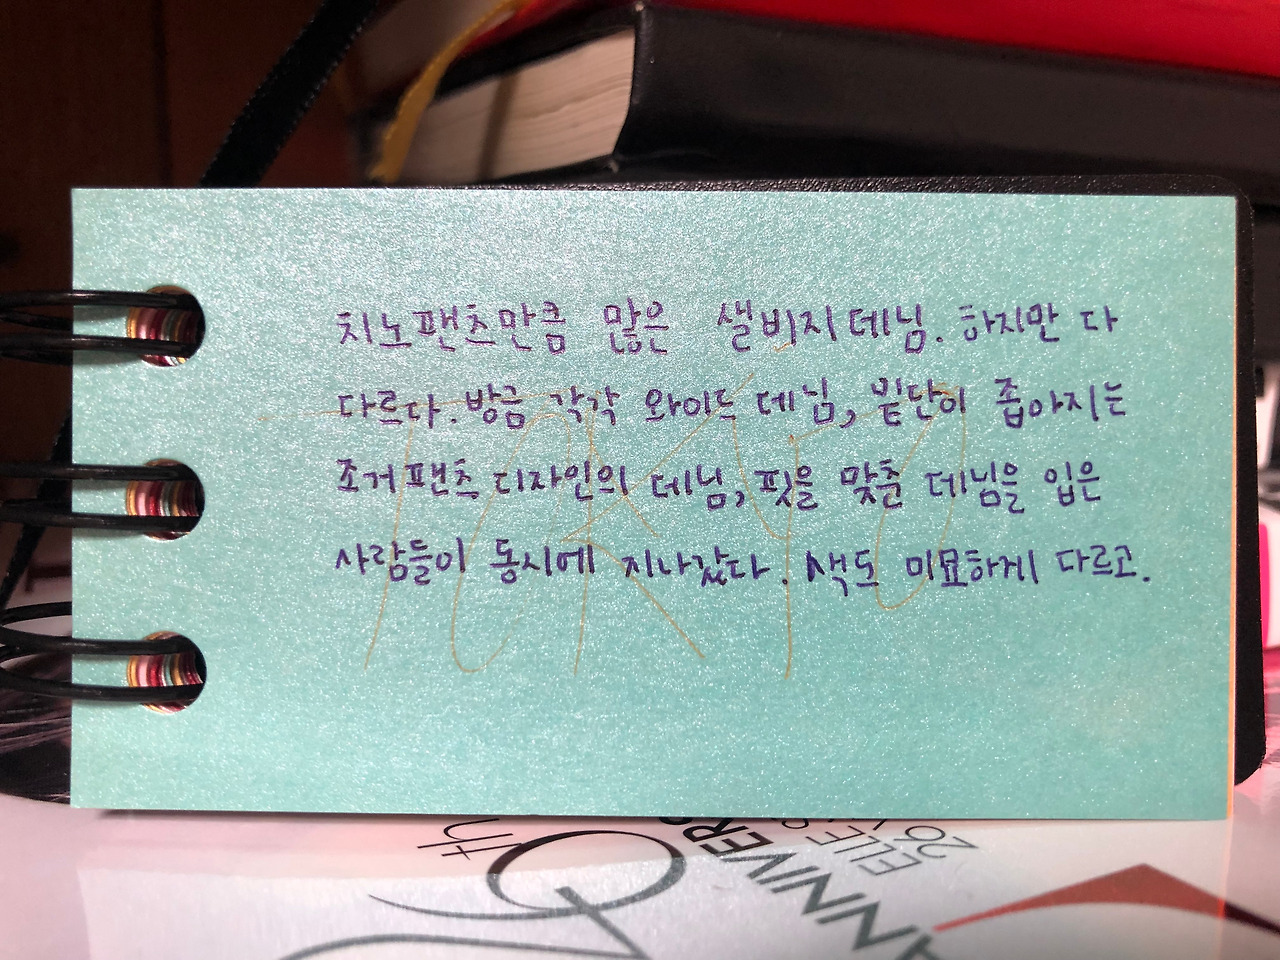 치노팬츠만큼 많은 샐비지데님. 하지만 다
다르다. 방금 각각 와이드 데님, 밑단이 좁아지는
조거팬츠 디자인의 데님, 핏을 맞춘 데님을 입은
사람들이 동시에 지나갔다. 색도 미묘하게 다르고.
TOKYO
th
ANNIVERS
ELLE